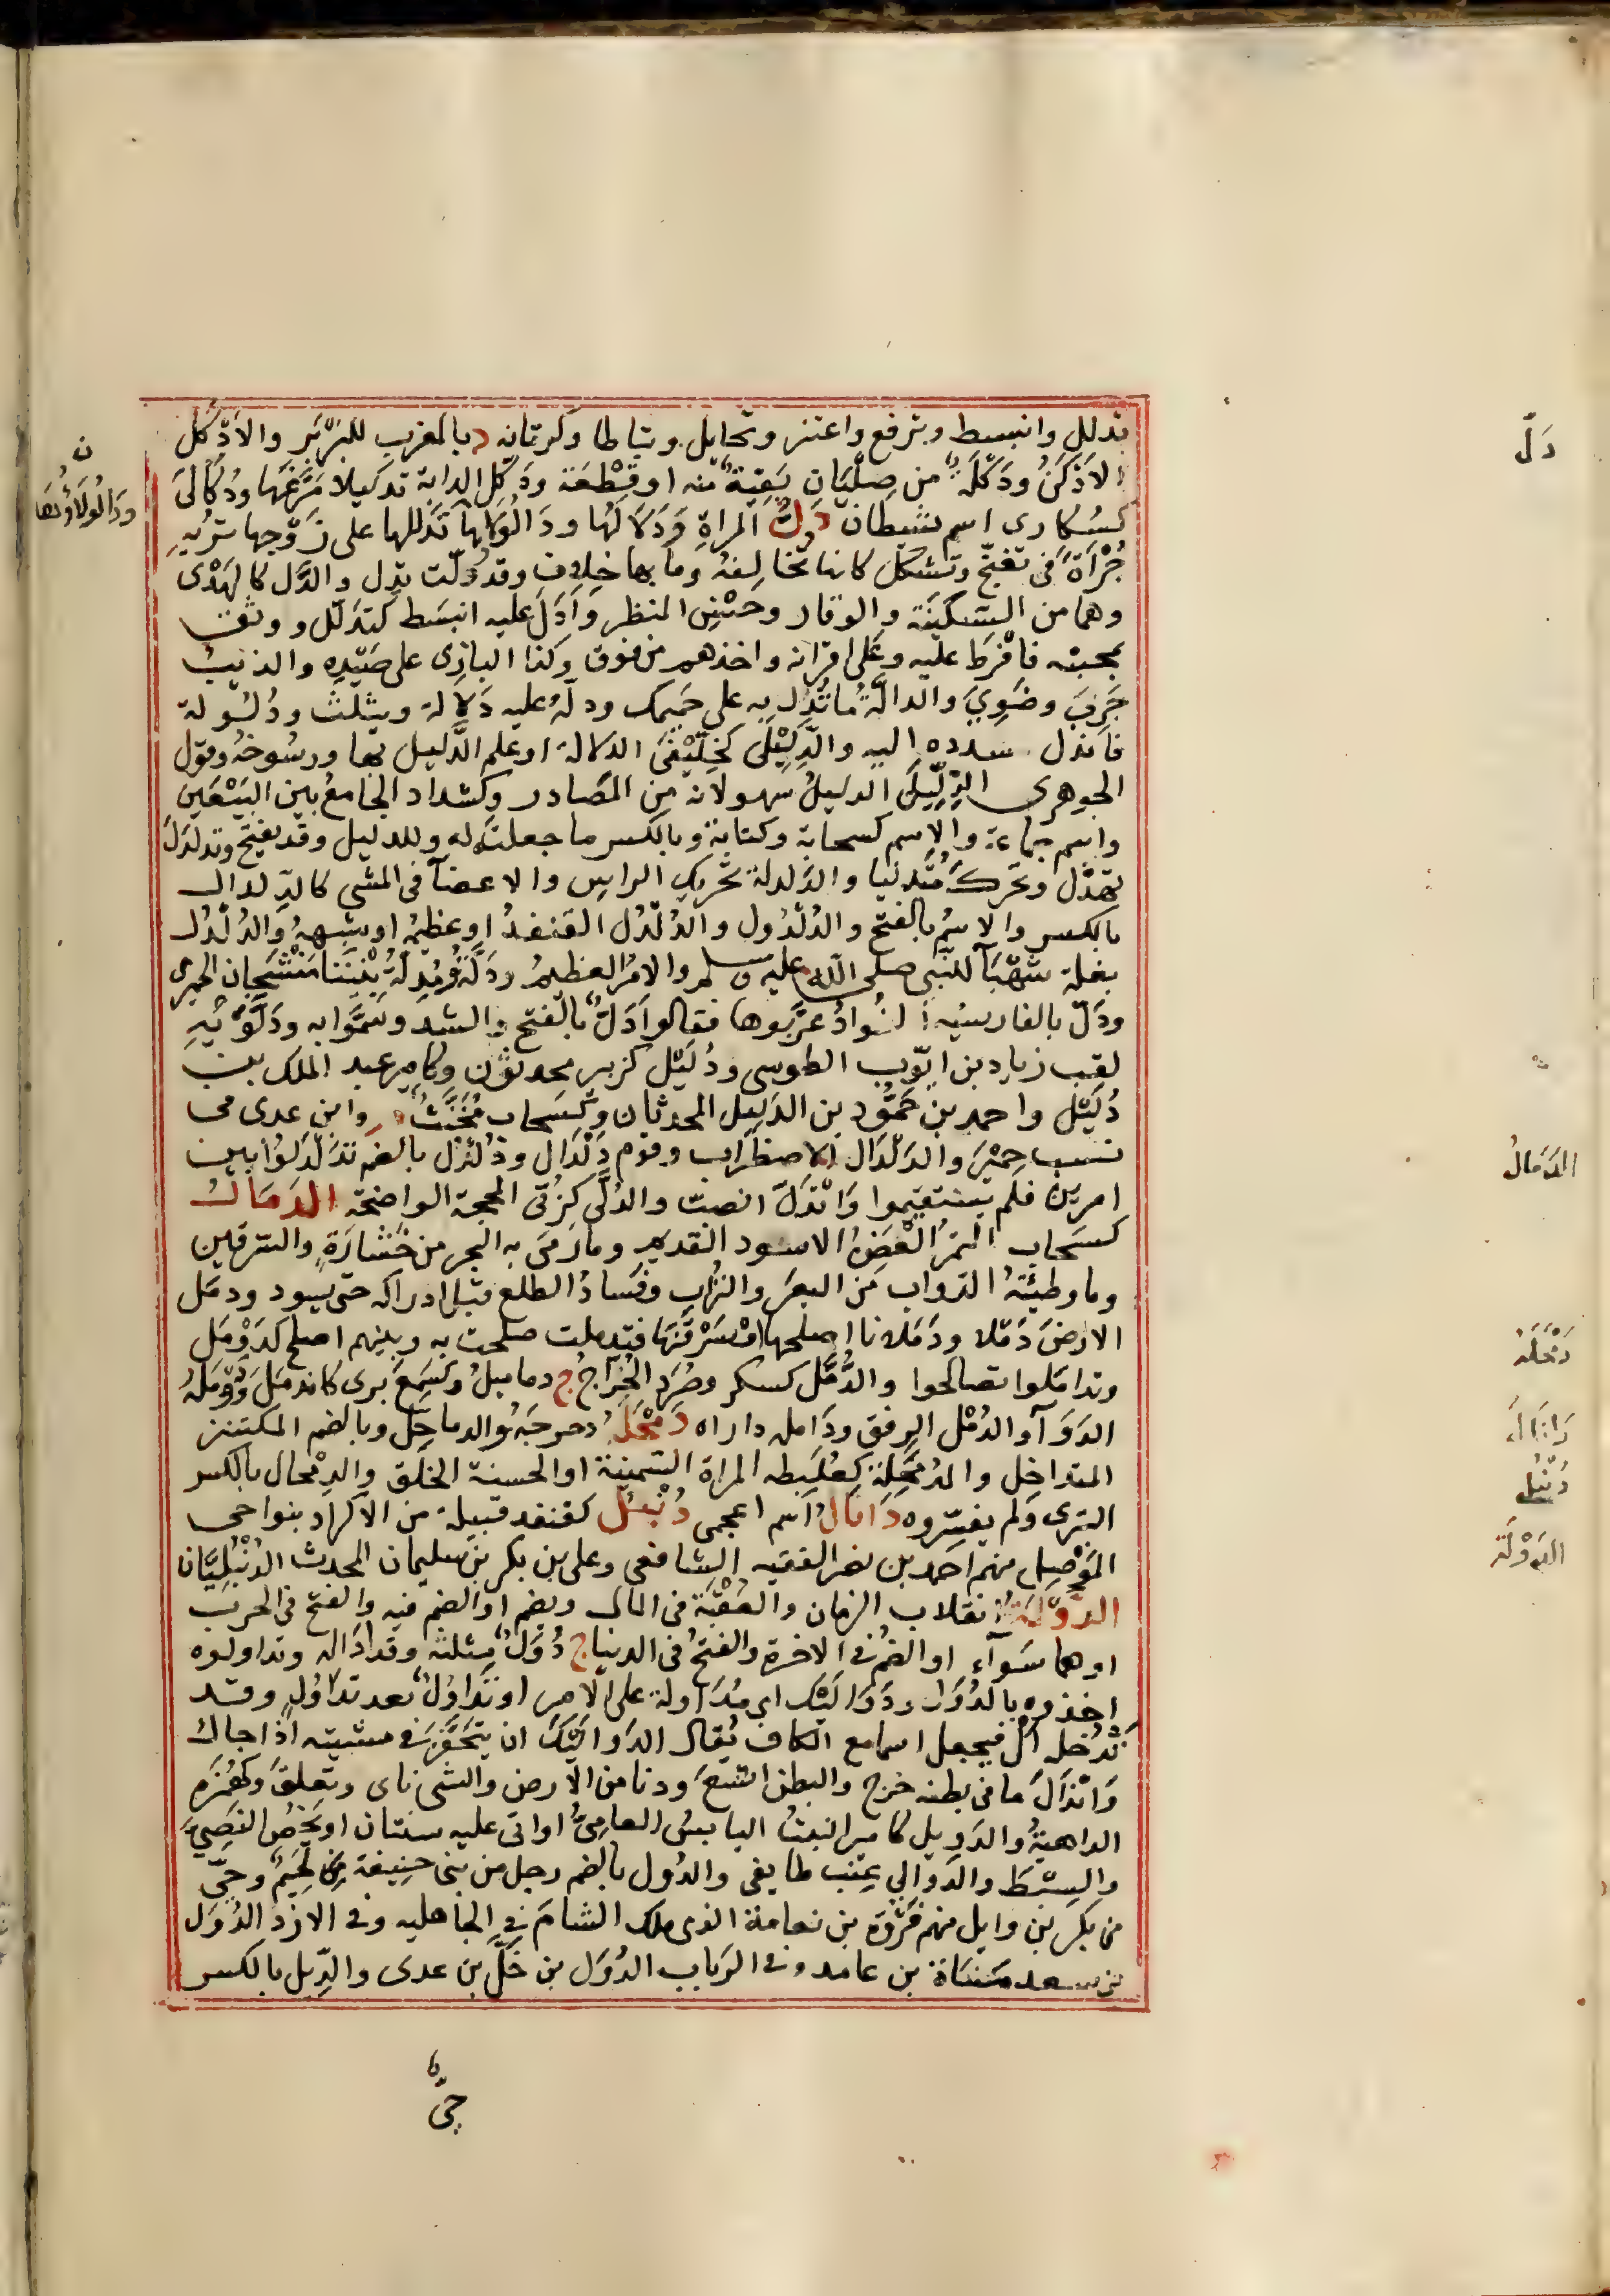 تدلل وانبسط وترفع واعتز وتحايل وتباطا وكرمانه د بالمغرب للبَرْبَر والاَدْكل
الاَدْكَنُ ودَكَلَةٌ من صِلِّيَانٍ بَقِيَّةٌ منه او قِطْعَة ودَكَّل الدابة تدكيلا مَرَّغَها ودُكَالَى
كسُكارى اسم شيطان دَلُّ المراةِ ودَلَالُهَا ودَالُولَاؤُها تَدَللها على زَوْجِها تُرِيهِ
جُرْأةً فى تغنّج وتشكّل كانها تُخالِفُه وما بها خِلاف وقد دَلّت تدِل والدَّل كالهَدْى
وهما من السَّكِينَة والوقار وحُسْنِ المنظر واَدَلّ عليه انبَسَط كتَدَلّل ووثق
بمحبته فافْرَط عليه وعَلى اقرانه واخذهم من فوق وكذا البازِى على صَيْدِهِ والذئبُ
جَرِبَ وضَوِيَ والدالَّةُ ما تُدِل به على حَمِيمك ودلَّهُ عليه دَلالة ويثلث ودُلُولة
فاندل سدده اليه والدِّلِّيْلَى كخِلِّيْفَى الدلالة او علم الدَّليل بها ورسُوخُه وقول
الجوهرى الدِّلِّيلَى الدليلُ سهو لانه من المَصَادر وكشداد الجامعُ بين البَيِّعَين
واسم جماعة والاسم كسحابة وكتابة وبالكسر ما جعلته له وللدليل وقد يفتح وتدلدَلَ
تهدّل وتحرك مُتدليا والدَلدلة تحريك الراس والاعضآ فى المشى كالدِّلدال
بالكسر والاسمُ بالفتح والدُلْدُول والدُلْدُل القنفدُ او عظيمُه او شبهُه والدُلْدُل
بغلة شَهْبَآ للنبى صلى الله عليه وسلم والامرُ العظيمُ ودَلَّةُ ومُدِلَّةُ بِنْتَا مَنْشَجان الحميرى
ودَلّ بالفارسيَّة الفُوادُ عرّبوها فقالوا دَلٌّ بالفتح والشد وسَمَّوا به ودَلُّوَيْهِ
لقب زياد بن ايّوب الطوسى ودُلَيْل كزبير محدثون وكامير عبد الملك بن
دُلَيْل واحمد بن حَمُّود بن الدَليل المحدثان وكسَحاب مُخَنَّثٌ وابن عدى فى
نسب حِمْيَر والدَلْدَال الاضطراب وقوم دَلْدَال ودُلْدُل بالضم تَدَلْدَلُوا بين
امرين فلم يستقيموا وَانْدَلّ انصبّ والدُلَّى كَرُبَّى المحجة الواضحة الدَمَالُ
كسَحاب التمرُ العَفِنُ الاسود القديم وما رَمَى به البحر من خُشَارَةٍ والسرقين
وما وطِئَتْهُ الدّواب من البَعَر والتُراب وفَسَادُ الطلع قبل ادراكه حتى يسود ودمَل
الارضَ دَمْلا ودَمَلانا اصلحها او سَرْقَنَهَا فتدملت صلحت به وبينهم اصلح كدَوْمَل
وتدامَلوا تصالحوا والدُّمَّل كسكر وصُرَدِ الخُرَاجُ ج دماميلُ وكسَمِعَ برى كاندَمَلَ ودَمَلَهُ
الدَوَآ والدَمْل الرِفق ودَامله داراه دَمْحَلَهُ دحرجَهُ والدماحِل وبالضم المكتنز
المتداخِل والدُمَحِلَة كعُلَبِطه المراة السَّمِينَة او الحسنة الخلق والدِمْحال بالكسر
البَترى ولم يفسّروه دَانيالُ اسم اعجمى دُنْبُل كقنفد قبيلة من الاكراد بنواحى
المَوْصِل منهم احمد بن نصر الفقيه الشافعى وعلى بن بكر بن سليمان المحدث الدُنْبُلِيّان
الدَّوْلَةُ انقلاب الزمان والعُقْبَة فى المال ويضم او الضم فيه والفتح فى الحرب
او هما سَوَآء او الضم فى الاخرة والفتحُ فى الدنيا ج دُوَلٌ مثلثه وقد ادَاله وتداولوه
اخذوه بالدُوَل ودَوَالَيْك اى مُدَاولة على الامر او تَدَاوُلٌ بعد تَدَاوُلٍ وقد
تدْخله اَلْ فيجعل اسما مع الكاف يُقال الدَوالَيْكَ ان يتحَفَّزَ فى مشيته اذا جاك
وَانْدَالَ ما فى بطنه خرج والبطن اتّسعَ ودنا من الارض والشى ناى وتعلقَ وكهُمَزة
الداهيةُ والدَوِيل كامير النبتُ اليابسُ العامِىُّ او اتى عليه سنتان او يَخُصُّ النَصِيَّ
والسِبَطَ والدَوالي عِنَب طايفى والدُول بالضم رجل من بنى حنيفة بن لُجَيْم وحيّ
من بكر بن وايل منهم فَرْوَة بن نعامة الذى ملك الشامَ فى الجاهليه وفى الازد الدُوَل
بن سعد مَنَاة بن عامد وفى الرَباب الدُوَل بن جَلّ بن عدى والدِّيل بالكسر
حىٌّ
ن
ودَالُولَاؤُهَا
دَلّ
الدَمَالُ
دَمْحَلَهُ
دَانيَالُ
دُنْبُل
الدَوْلَة